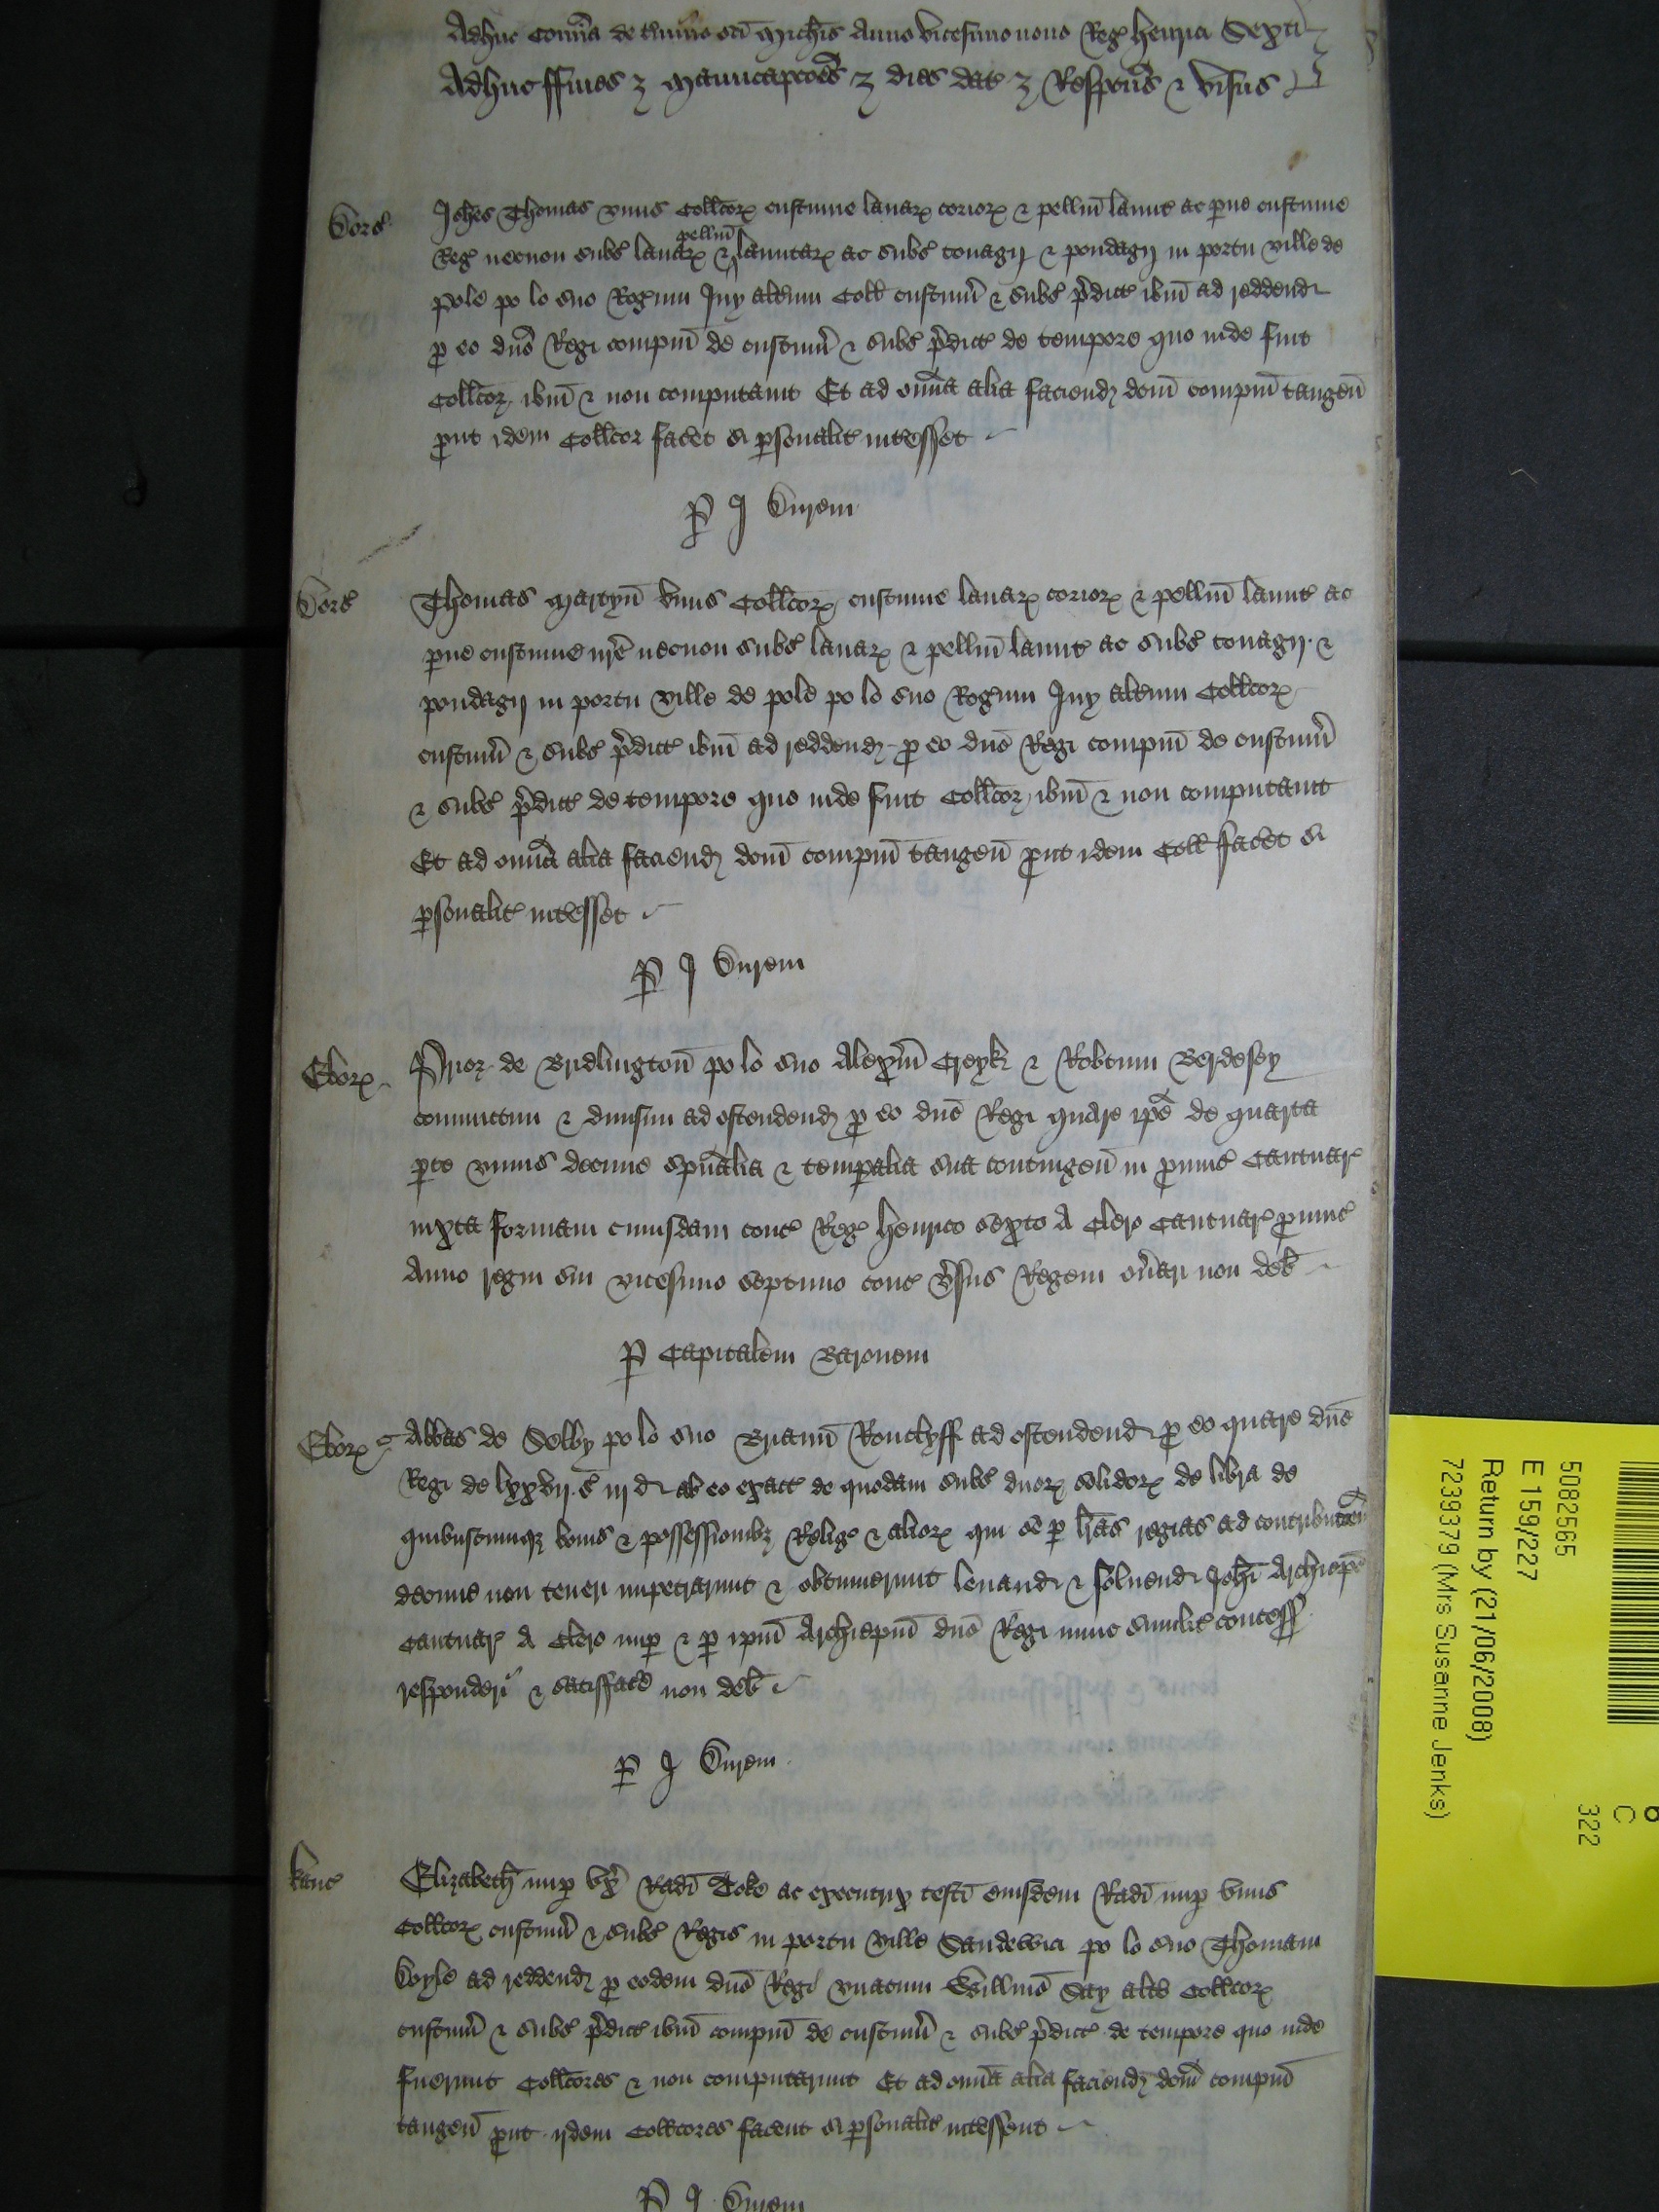 Adhuc Com̄ia de t̄mino sc̄i Mich̄is Anno vicesimo nono Reg̃ Henrici Sexti
Adhuc ffines ⁊ Manucapcōes ⁊ dies dat̃ ⁊ Respc̄us ⁊ visus
Dors̃
Joh̄es Thomas vnus Coll̄coꝝ custume lanaꝝ corioꝝ ⁊ pelliū lanut̃ ac ꝑue custume
pelliū
Reg̃ necnon subs̃ lanaꝝ ⁊ lanutaꝝ ac subs̃ tonagij ⁊ pondagij in portu ville de
Pole po lo suo Rog̃um Juy alt̃um Coll̄ custum̄ ⁊ subs̃ p̄dict̃ ib̄m ad reddend̃
ꝓ eo dn̄o Regi comp̄m de custum̄ ⁊ subs̃ p̄dict̃ de tempore quo inde fuit
Coll̄cor ib̄m ⁊ non computauit Et ad om̄ia alia faciend̃ dc̄m comp̄m tangen̄
ꝓut idem Coll̄cor facet̃ si ꝑsonalit̃ int̃esset
P̱ J Durem
Dors̃
Thomas Martyn̄ vnus Coll̄coꝝ custume lanaꝝ corioꝝ ⁊ pelliū lanut̃ ac
ꝑue custume nr̄e necnon subs̃ lanaꝝ ⁊ pelliū lanut̃ ac subs̃ tonagij ⁊
pondagij in portu ville de Pole po lo suo Rog̃um Juy alt̃um Coll̄coꝝ
custum̄ ⁊ subs̃ p̄dict̃ ib̄m ad reddend̃ ꝓ eo dn̄o Regi comp̄m de custum̄
⁊ subs̃ p̄dict̃ de tempore quo inde fuit Coll̄cor ib̄m ⁊ non computauit
Et ad om̄ia alia faciend̃ dc̄m comp̄m tangen̄ ꝓut idem Coll̄ facet̃ si
ꝑsonalit̃ int̃esset
P̱ J Durem
Eboꝝ
Prior de Bridlington̄ po lo suo Alex̄m Creyk ⁊ Rob̄tum Berdesey
coniunctim ⁊ diuisim ad ostendend̃ ꝓ eo dn̄o Regi quare ip̄e de quarta
ꝑte vnius decime sp̄ualia ⁊ temꝑalia sua contingen̄ in ꝓuinc̃ Cantuar̃
iuxta formam cuiusdam conc̃ Reg̃ Henrico sexto A Clero Cantuar̃ ꝓuinc̃
Anno regni sui vicesimo septimo conc̃ v̄sus Regem on̄ari non deb̄
P̱ Capitalem Baronem
Eboꝝ
Abbas de Selby po lo suo Brianū Rouclyff ad ostendend̃ ꝓ eo quare dn̄o
Regi de lxxvij s̃ iij d̃ ab eo exact̃ de quodam subs̃ duoꝝ solidoꝝ de libra de
quibuscumqꝫ bonis ⁊ possessionibꝫ Relig̃ ⁊ alioꝝ qui se ꝑ lr̄as regias ad contribucōem
decime non teneri impetrarunt ⁊ obtinuerunt leuand̃ ⁊ soluend̃ Joh̄i Archiep̄o
Cantuar̃ A Clero nuꝑ ⁊ ꝑ ip̄m Archiep̄m dn̄o Regi nunc similit̃ concess̃
respondere ⁊ satisfac̃e non deb̄
P̱ J Durem
Kanc̃
Elizabeth nuꝑ vx̄ Rad̄i Toke ac executrix test̄i eiusdem Rad̄i nuꝑ vnius
Coll̄coꝝ custum̄ ⁊ subs̃ Regis in portu ville Sandewici po lo suo Thomam
Doyle ad reddend̃ ꝓ eodem dn̄o Regi vnacum Will̄mo Say alt̃o Coll̄coꝝ
custum̄ ⁊ subs̃ p̄dict̃ ib̄m comp̄m de custum̄ ⁊ subs̃ p̄dict̃ de tempore quo inde
fuerunt Coll̄cores ⁊ non computarunt Et ad om̄ia alia faciend̃ dc̄m comp̄m
tangen̄ ꝓut ijdem Coll̄cores facent si ꝑsonalit̃ int̃essent
P̱ J Durem
5082565
E 159/227
Return by (21/06/2008)
7239379 (Mrs Susanne Jenks)
C
322